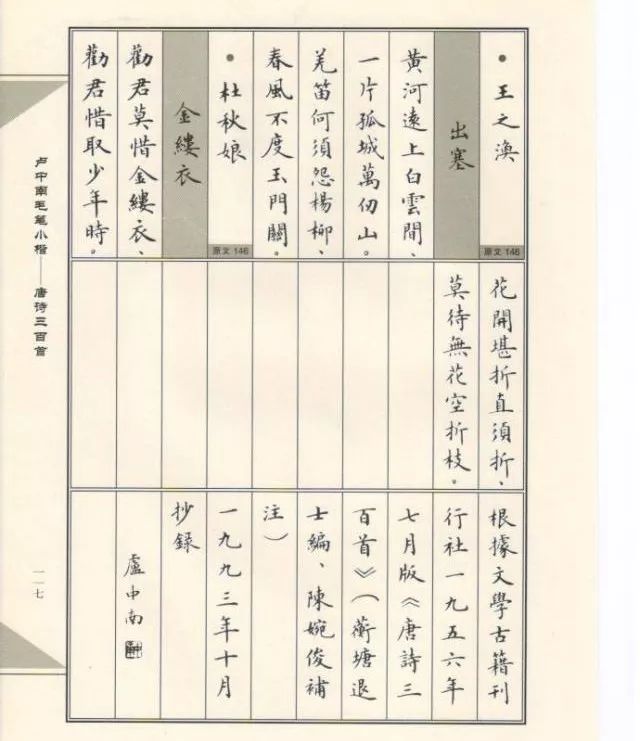 王之渙
原文 146
出塞
黃河遠上白雲間、
一片孤城萬仞山。
羌笛何須怨楊柳、
春風不度玉門關。
杜秋娘
原文 146
金縷衣
勸君莫惜金縷衣、
勸君惜取少年時。
花開堪折直須折、
莫待無花空折枝。
根據文學古籍刊
行社一九五六年
七月版《唐詩三
百首》（蘅塘退
士編、陳婉俊補
注）
一九九三年十月
抄録
盧中南
卢中南毛笔小楷——唐诗三百首
一一七